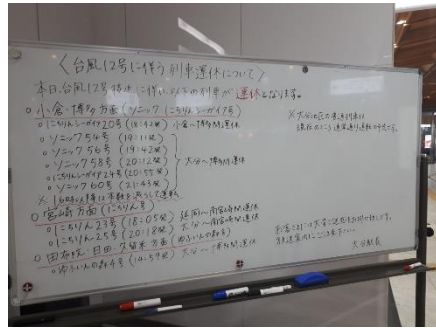 〈台風12号に伴う列車運休について〉
本日、台風12号接近に伴い以下の列車が 運休となります。
○ 小倉・博多方面(ソニック にちりんシーガイア号)
○にちりんシーガイア20号(18:42発) 小倉〜博多間運休
○ソニック54号 (19:11発)
○ソニック56号 (19:42発)
○ソニック58号 (20:12発) 大分〜博多間運休
○にちりんシーガイア24号(20:55発)
○ソニック60号 (21:43発)
※16時以降は本数を減らして運転
○宮崎方面(にちりん号)
○にちりん23号(18:05発) 延岡〜南宮崎間運休
○にちりん25号(20:18発) 大分〜南宮崎間運休
○由布院・日田・久留米方面(ゆふいんの森号)
○ゆふいんの森4号 (14:57発) 大分〜博多間運休
※大分地区の普通列車は
現在のところ通常通り運転の予定です。
お客さまには大変ご迷惑をお掛けします。
大分駅長